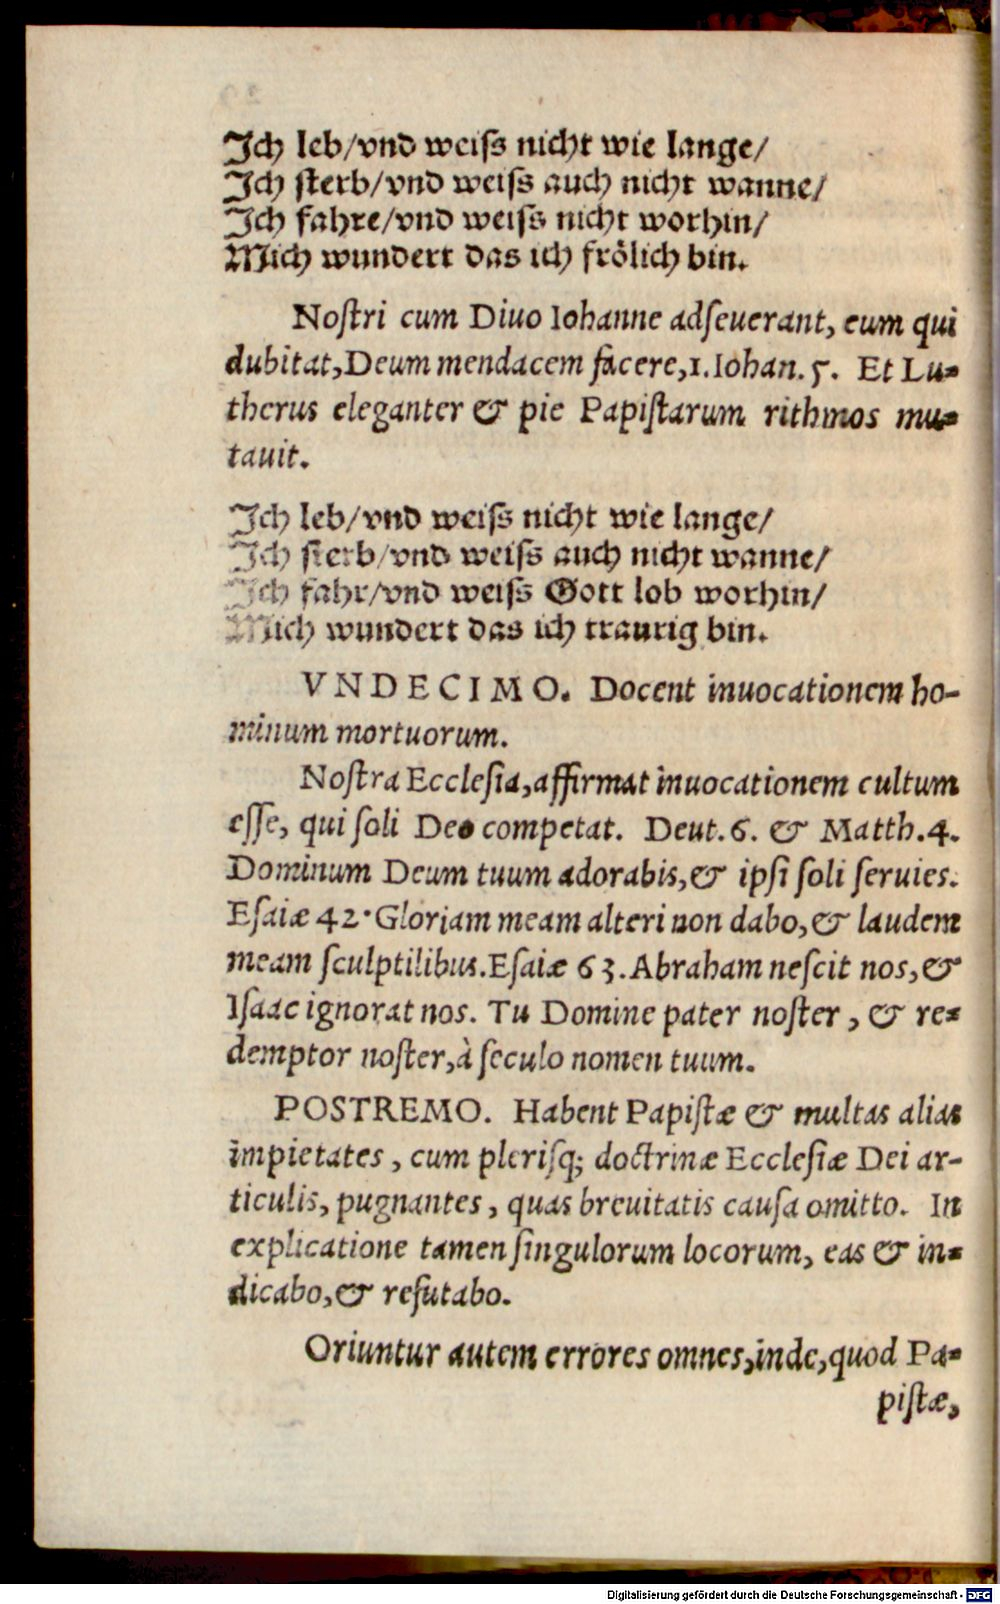 Ich leb/vnd weiſs nicht wie lange/
Ich ſterb/vnd weiſs auch nicht wanne/
Ich fahre/vnd weiſs nicht worhin/
Mich wundert das ich frölich bin.
Noſtri cum Diuo Iohanne adſeuerant, eum qui
dubitat,Deum mendacem facere,1.Iohan. 5. Et Lu-
therus eleganter & pie Papiſtarum rithmos mu-
tauit.
Ich leb/vnd weiſs nicht wie lange/
Ich ſterb/vnd weiſs auch nicht wanne/
Ich fahr/vnd weiſs Gott lob worhin/
Mich wundert das ich traurig bin.
VNDECIMO. Docent inuocationem ho-
minum mortuorum.
Noſtra Eccleſia,affirmat inuocationem cultum
eſſe, qui ſoli Deo competat. Deut. 6. & Matth. 4.
Dominum Deum tuum adorabis,& ipſi ſoli ſeruies.
Eſaiæ 42·Gloriam meam alteri non dabo,& laudem
meam ſculptilibus.Eſaiæ 63.Abraham neſcit nos,&
Iſaac ignorat nos. Tu Domine pater noſter , & re-
demptor noſter,à ſeculo nomen tuum.
POSTREMO. Habent Papiſtæ & multas alias
impietates , cum pleriſq; doctrinæ Eccleſiæ Dei ar-
ticulis, pugnantes , quas breuitatis cauſa omitto. In
explicatione tamen ſingulorum locorum, eas & in-
dicabo,& refutabo.
Oriuntur autem errores omnes,inde,quod Pa-
piſtæ,
Digitalisierung gefördert durch die Deutsche Forschungsgemeinschaft - DFG